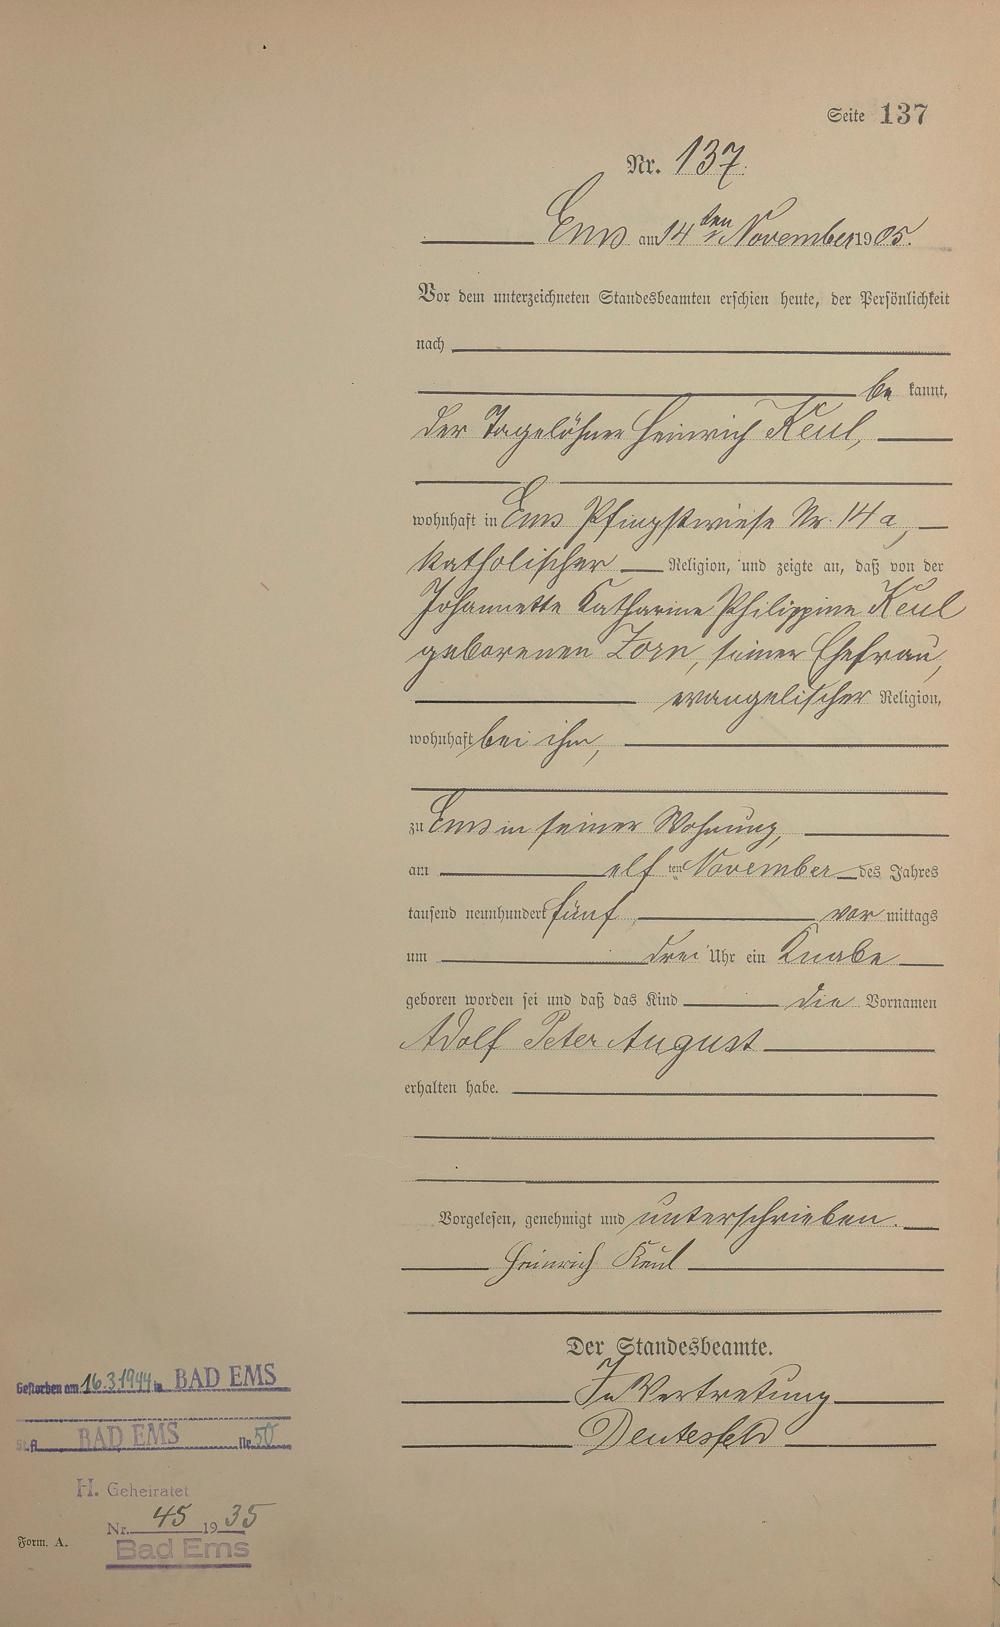 Seite 137
Nr. 137.
Ems am 14ten November 1905.
Vor dem unterzeichneten Standesbeamten erschien heute, der Persönlichkeit
nach
be kannt,
der Tagelöhner Heinrich Keul,
wohnhaft in Ems Pfingstwiese Nr. 14 a,
katholischer Religion, und zeigte an, daß von der
Johannette Katharine Philippine Keul
geborenen Zorn, seiner Ehefrau,
evangelischer Religion,
wohnhaft bei ihm,
zu Ems in seiner Wohnung,
am elf ten November des Jahres
tausend neunhundert fünf vor mittags
um drei Uhr ein Knabe
geboren worden sei und daß das Kind die Vornamen
Adolf Peter August
erhalten habe.
Vorgelesen, genehmigt und unterschrieben.
Heinrich Keul
Der Standesbeamte.
In Vertretung
Deutesfeld
Gestorben am 16.3.1944 in BAD EMS
St. A. BAD EMS Nr. 50
H. Geheiratet
Nr. 45 1935
Bad Ems
Form. A.